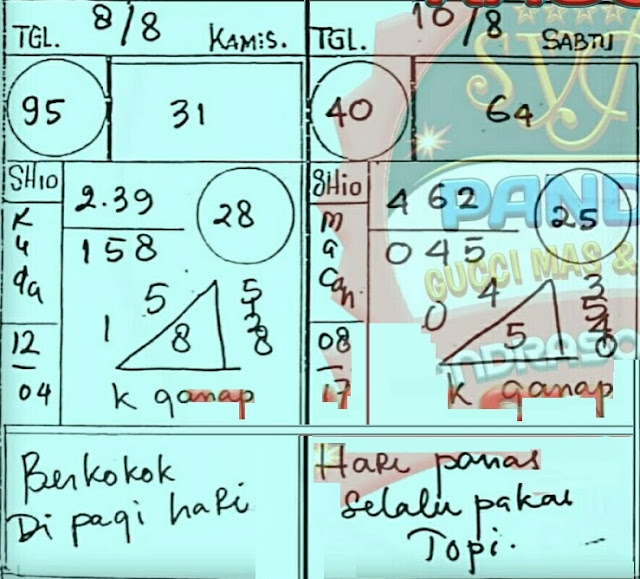 TGL. 8/8 KAMIS.
95 31
SHIO
Kuda
2.39
158
28
12
04
1 5 8
5
3
2
8
K ganap
Berkokok
Di pagi hari
TGL. 10/8 SABTU
40 64
SHIO
macan
462
045
25
08
17
0 4 5
3
5
4
0
K ganap
Hari panas
Selalu pakai
Topi.
PAND
GUCCI MAS &
NDRASO